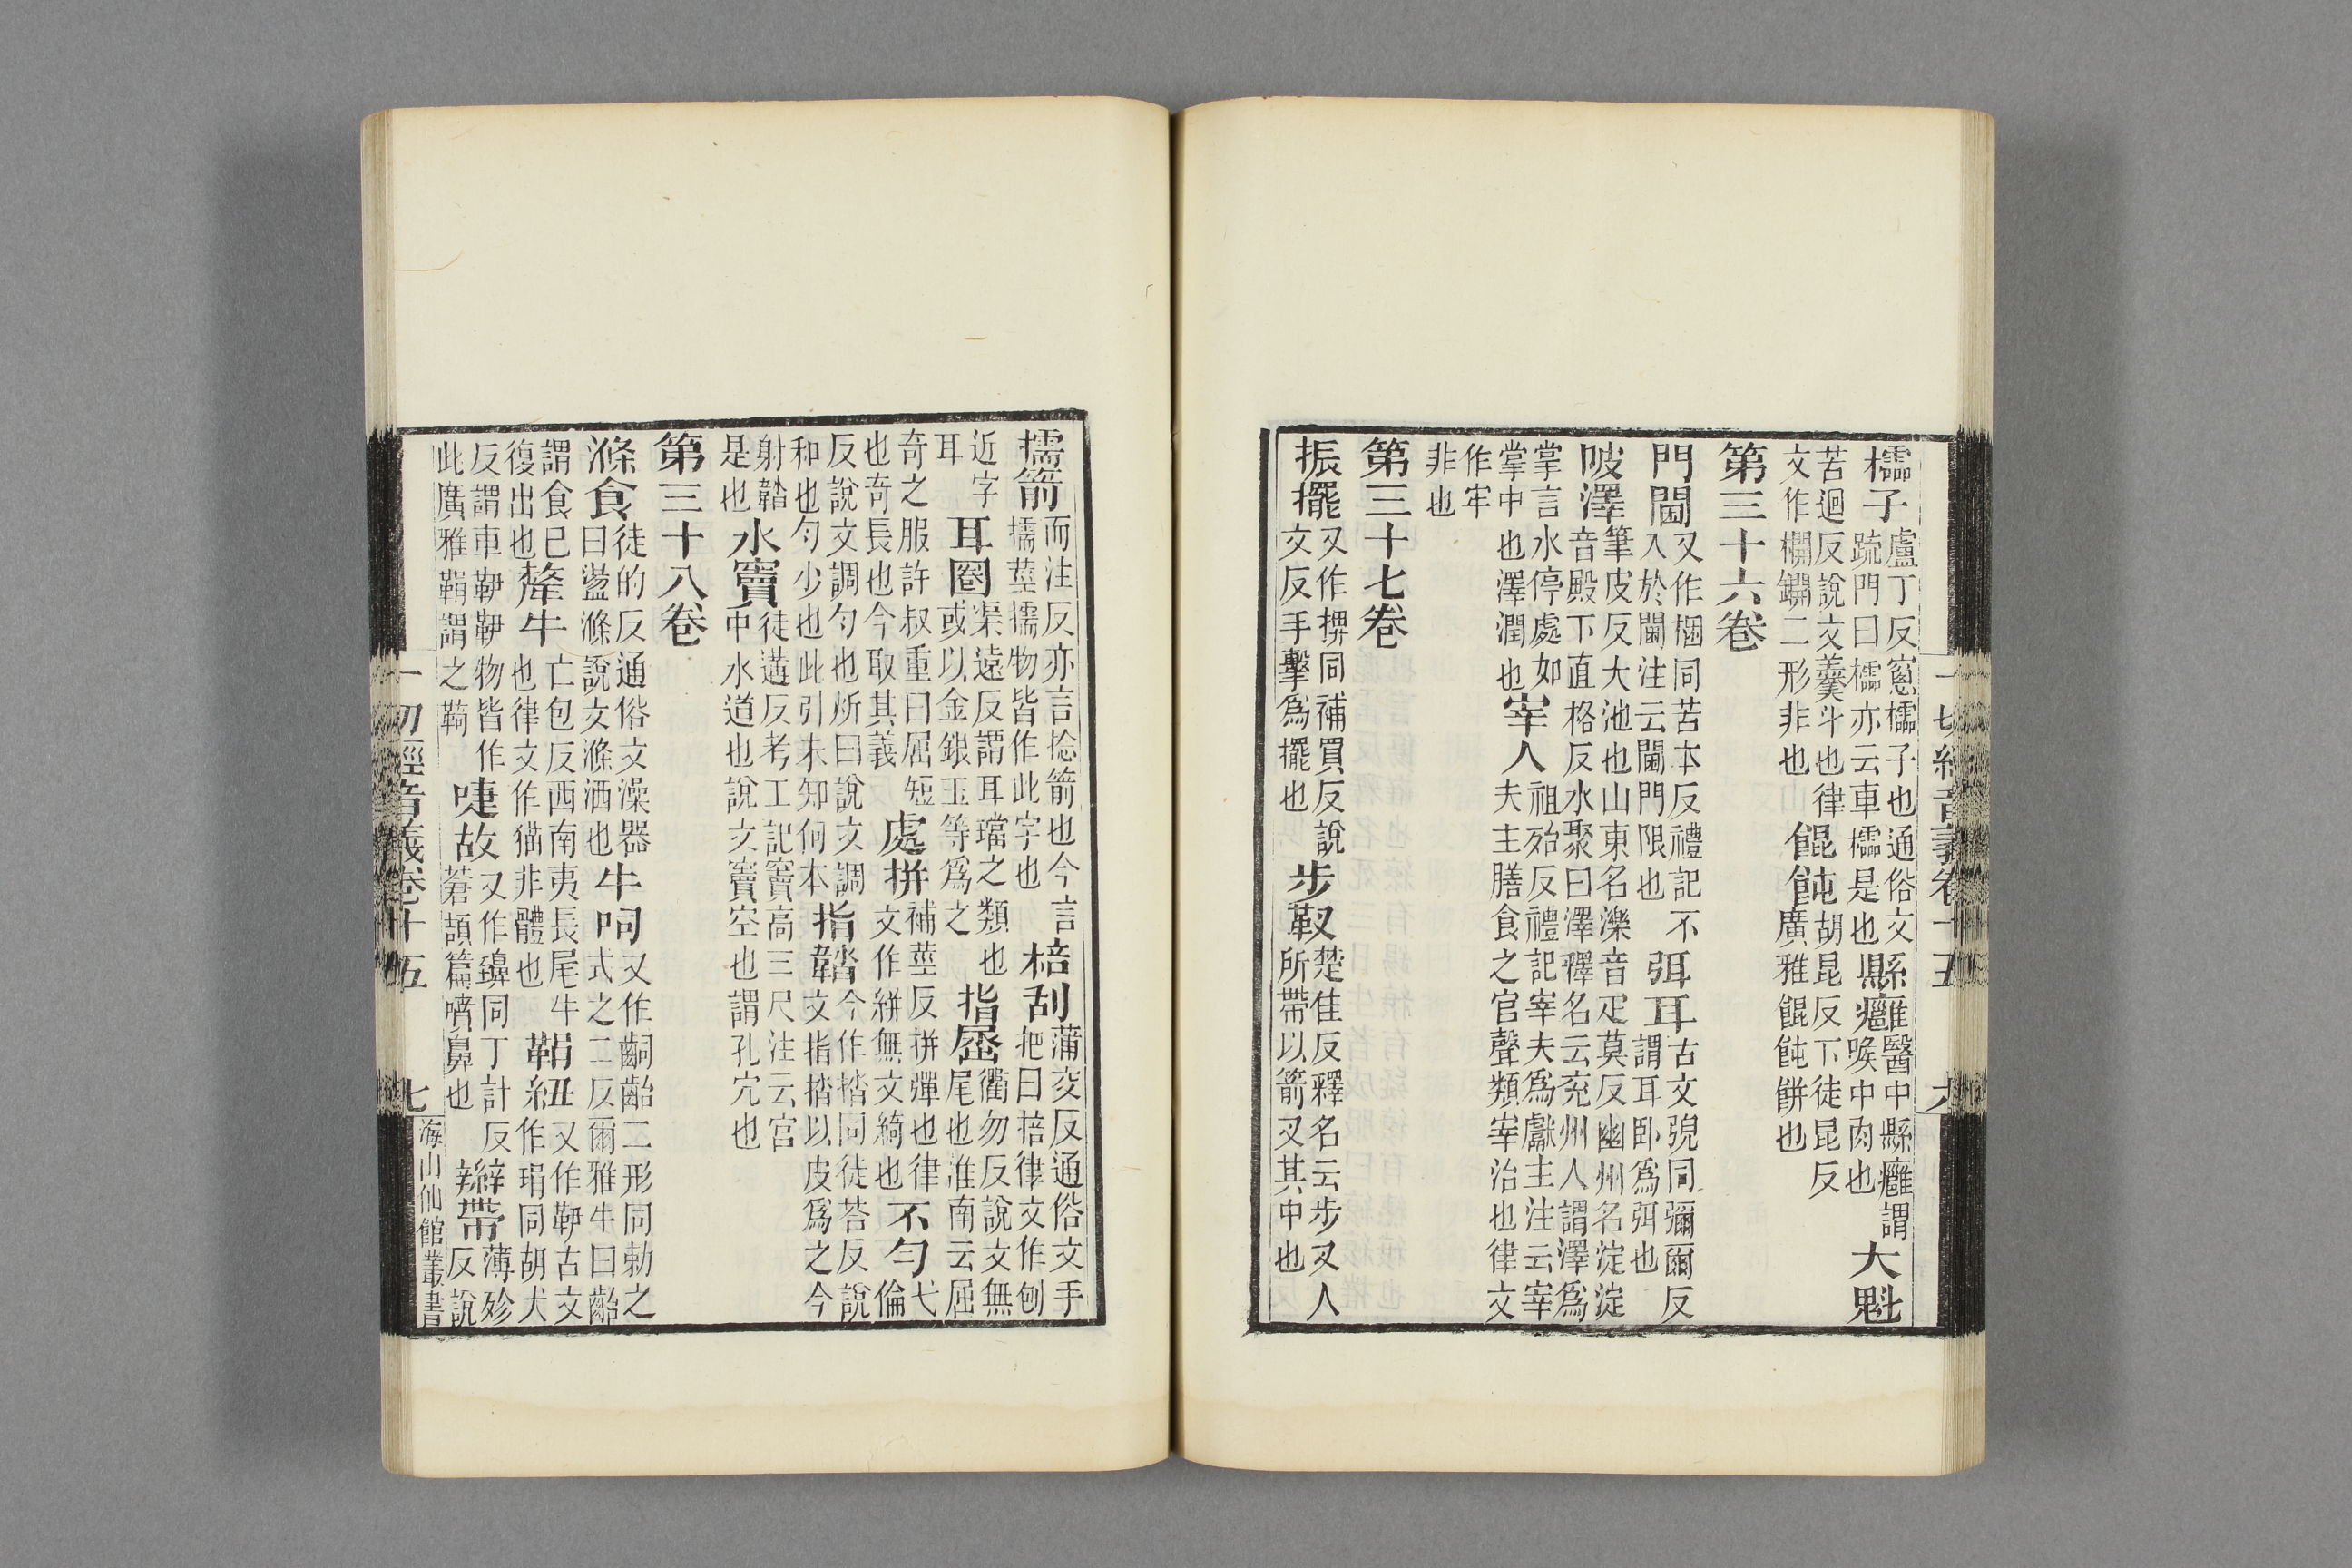 櫺子盧丁反窻櫺子也通俗文疏門曰櫺亦云車櫺是也縣癰醫中縣癰謂喉中肉也大魁
苦迴反說文羹斗也律文作二形非也餛飩胡昆反下徒昆反廣雅餛飩餅也
第三十六卷
門閫又作梱同苦本反禮記不入於閫注云閫門限也弭耳古文同彌爾反謂耳卧爲弭也
陂澤筆皮反大池也山東名濼音疋莫反幽州名淀淀音殿下直格反水聚曰澤釋名云兖州人謂澤爲
掌言水停處如掌中也澤潤也宰人祖殆反禮記宰夫爲獻主注云宰夫主膳食之官聲類宰治也律文
作牢非也
第三十七卷
振擺又作捭同補買反說文反手擊爲擺也步靫楚佳反釋名云步叉人所帶以箭叉其中也
一切經音義卷十五 六
擩箭而注反亦言捻箭也今言擩莖擩物皆作此字也棓刮蒲交反通俗文手把曰掊律文作刨
近字耳耳圈渠遠反謂耳璫之類也或以金銀玉等爲之指衢勿反說文無尾也淮南云屈
奇之服許叔重曰屈短也奇長也今取其義處拼補莖反拼彈也律文作絣無文綺也不勻弋倫
反說文調勻也所曰說文調和也勻少也此引未知何本指鞜今作㧺同徒荅反說文指㧺以皮爲之今
射鞜是也水竇徒遘反考工記竇高三尺注云宮中水道也說文竇空也謂孔穴也
第三十八卷
滌食徒的反通俗文澡器曰盪滌說文滌洒也牛呞又作齝二形同勑之式之二反爾雅牛曰齝
謂食已復出也犛牛亡包反西南夷長尾牛也律文作猫非體也鞙紐又作古文作琄同胡犬
反謂車物皆作此廣雅鞙謂之嚏故又作同丁計反蒼頡篇噴鼻也辮帶薄殄反說
一切經音義卷十五 七 海山仙館叢書